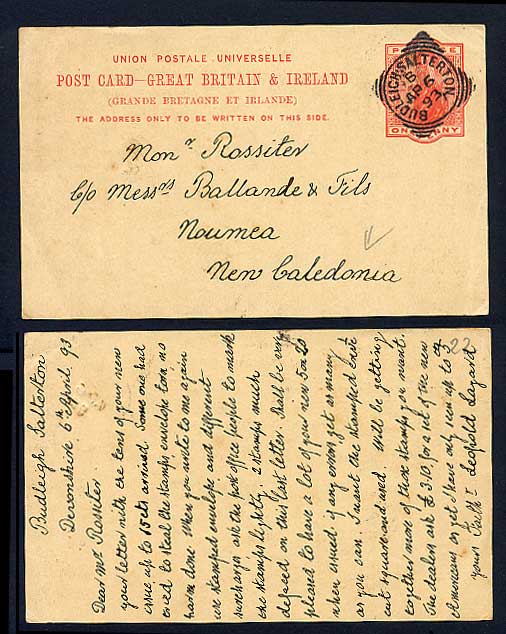 UNION POSTALE UNIVERSELLE
POST CARD—GREAT BRITAIN & IRELAND
(GRANDE BRETAGNE ET IRLANDE)
THE ADDRESS ONLY TO BE WRITTEN ON THIS SIDE.
BUDLEIGH-SALTERTON
B
AP 6
93
Monr. Rossiter
c/o Messrs Ballande & Fils
Noumea
New Caledonia
22
Budleigh Salterton
Devonshire 6th April 93
Dear Mr Rossiter
your letter with the lens of your new
issue up to 15cts arrived. Some one had
tried to steal the stamps envelope torn no
harm done. When you write to me again
use stamped envelope and different
surcharge ask the post office people to mark
the stamps lightly. 2 stamps much
defaced on this last letter. Shall be very
pleased to have a lot of your new 5 or 20
when issued if any errors get as many
as you can. I want the stamped
cut square and used. Will be getting
together more of those stamps you want.
The dealers ask £3.10 for a set of the new
Americans as yet I have only seen up to 3
yours Faithy Leopold